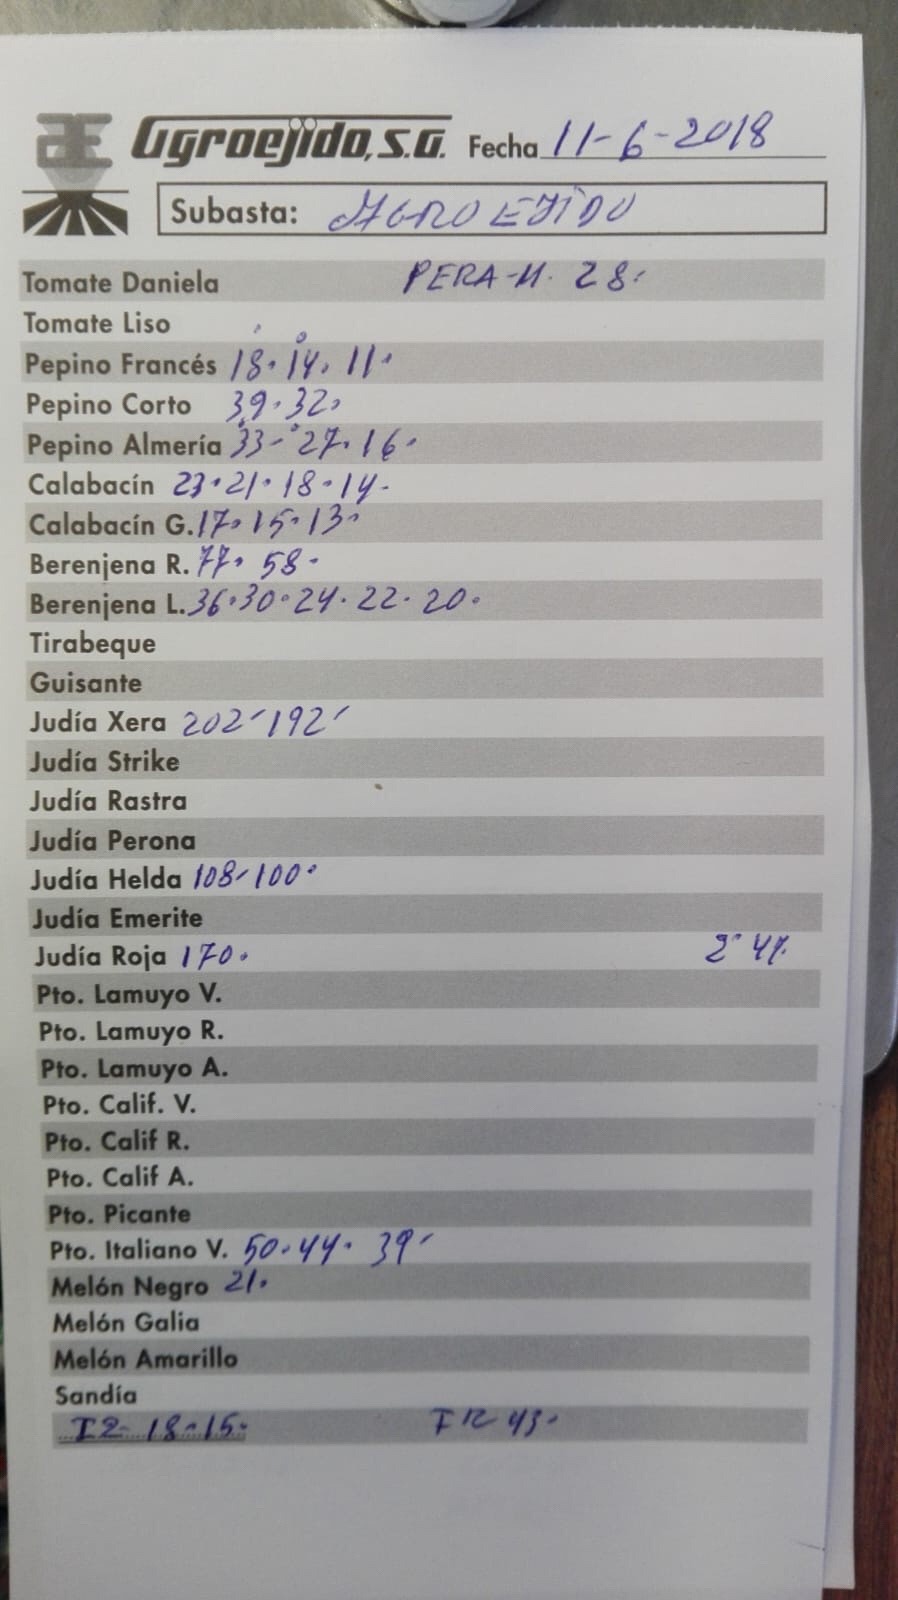 Agroejido, S.A. Fecha 11-6-2018
Subasta: AGROEJIDO
Tomate Daniela PERA-M. 28.
Tomate Liso
Pepino Francés 18. 14. 11.
Pepino Corto 39. 32.
Pepino Almería 33- 27. 16.
Calabacín 23. 21. 18. 14-
Calabacín G. 17. 15. 13.
Berenjena R. 77. 58.
Berenjena L. 36. 30. 24. 22. 20.
Tirabeque
Guisante
Judía Xera 202' 192'
Judía Strike
Judía Rastra
Judía Perona
Judía Helda 108, 100.
Judía Emerite
Judía Roja 170.
Pto. Lamuyo V.
Pto. Lamuyo R.
Pto. Lamuyo A.
Pto. Calif. V.
Pto. Calif R.
Pto. Calif A.
Pto. Picante
Pto. Italiano V. 50. 44. 39'
Melón Negro 21.
Melón Galia
Melón Amarillo
Sandía
18. 15. 43.